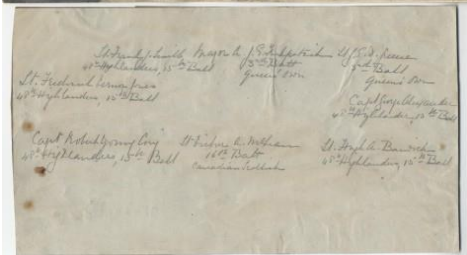 Lt Frank J. Smith
48th Highlanders, 15th Batt
Major A. J. E. Kirkpatrick
3rd Batt
Queen's Own
Lt
Batt
Queen's Own
Lt. Frederick Vernon Jones
48th Highlanders, 15th Batt
Capt George Alexander
48th Highlanders, 15th Batt
Capt Robert Young Cory
48th Highlanders, 15th Batt
Lt Victor A.
16th Batt
Canadian Scottish
Lt. Hugh A. Barwick
48th Highlanders, 15th Batt